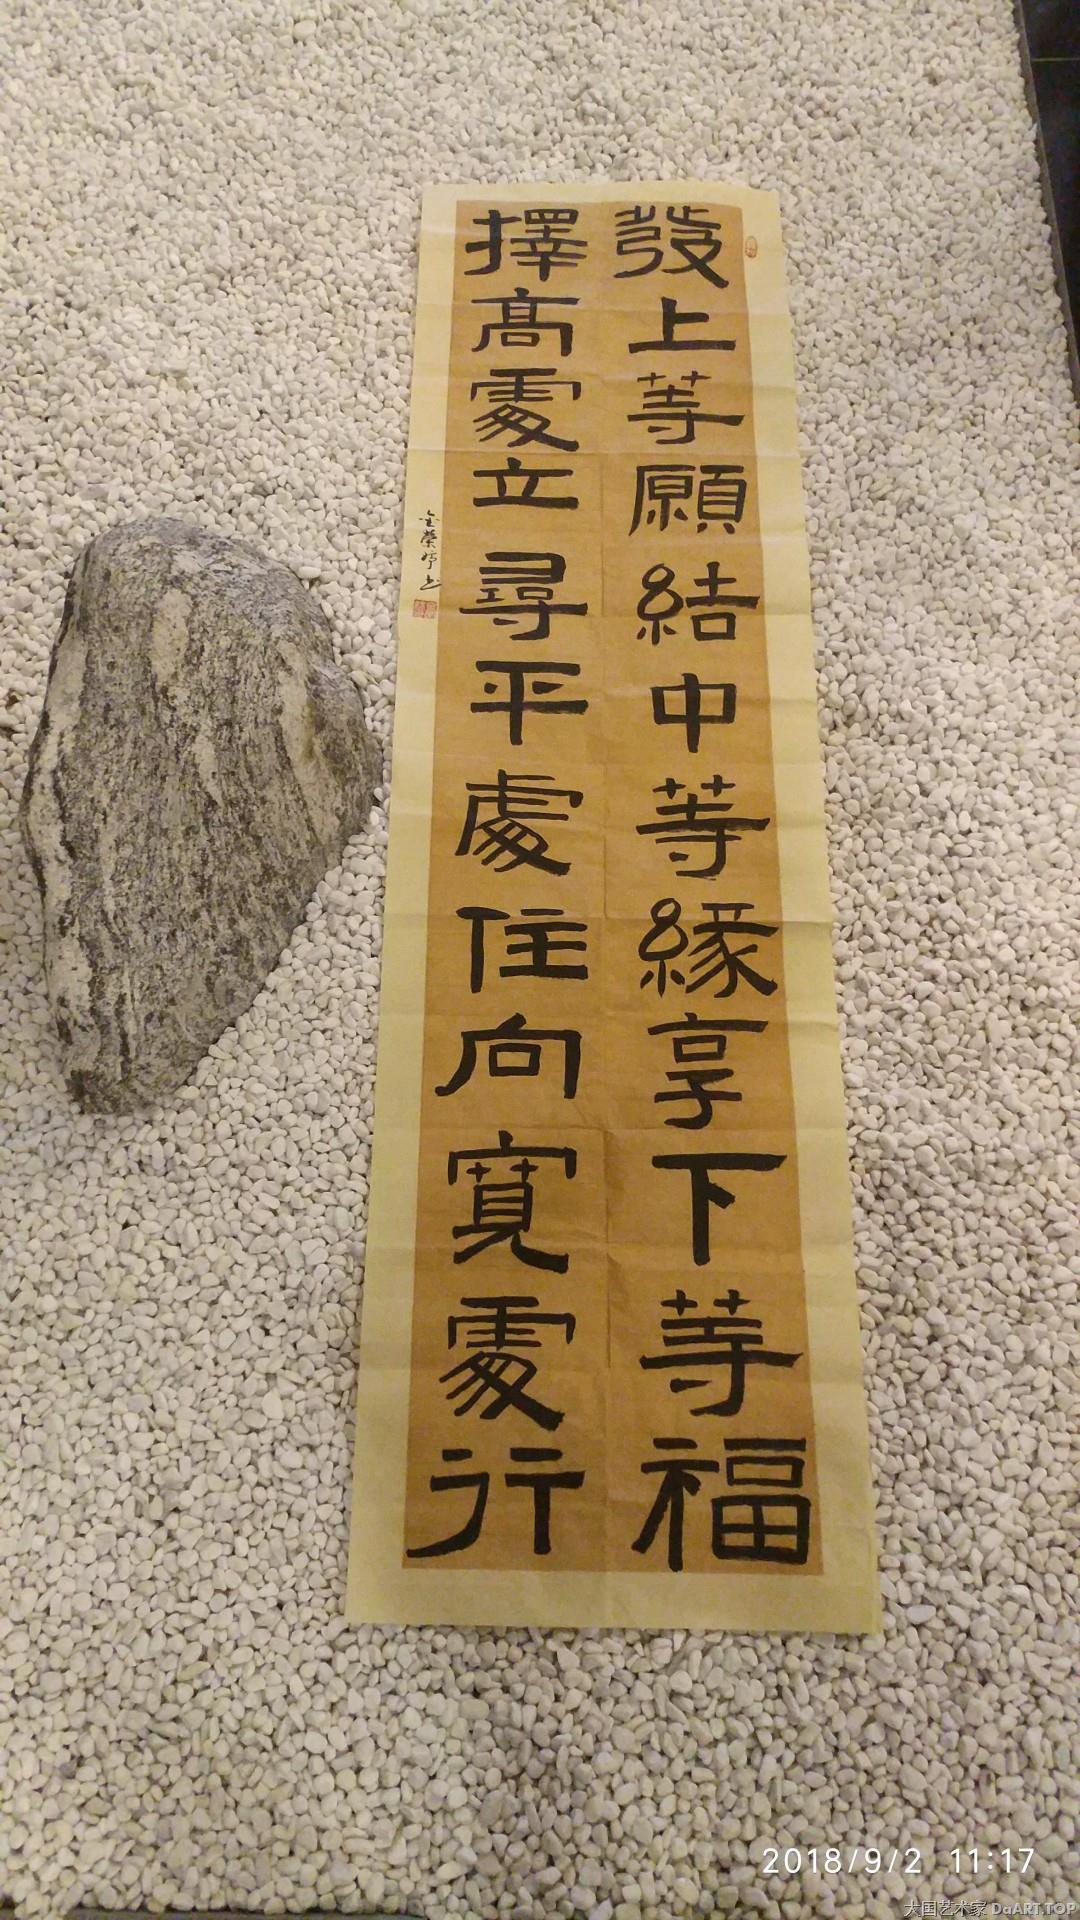 發上等願結中等緣享下等福
擇高處立尋平處住向寬處行
2018/9/2 11:17
大国艺术家 DaART.TOP